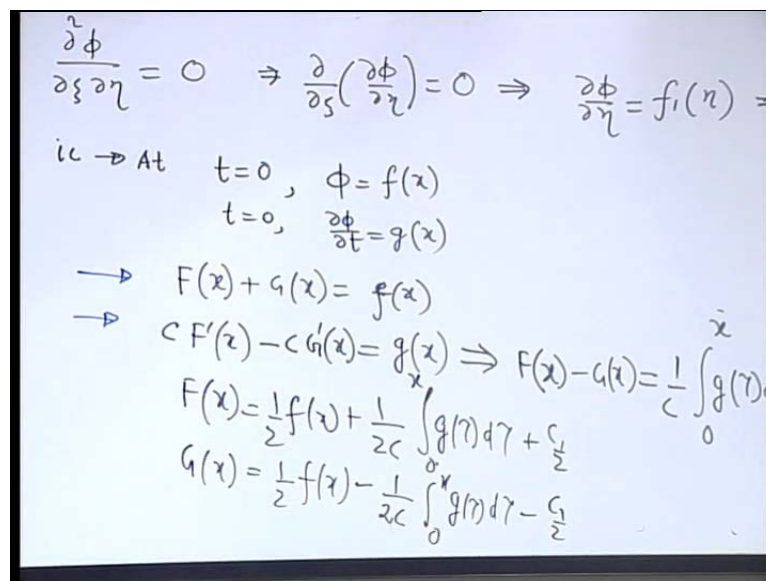 ∂²φ/∂ξ∂η = 0 ⇒ ∂/∂ξ(∂φ/∂η) = 0 ⇒ ∂φ/∂η = f₁(η) =
ic → At t=0, φ = f(x)
t=0, ∂φ/∂t = g(x)
→ F(x) + G(x) = f(x)
→ C F'(x) − C G'(x) = g(x) ⇒ F(x) − G(x) = 1/C ∫₀ˣ g(τ)d
F(x) = 1/2 f(x) + 1/2C ∫₀ˣ g(τ)dτ + C₁/2
G(x) = 1/2 f(x) − 1/2C ∫₀ˣ g(τ)dτ − C₁/2